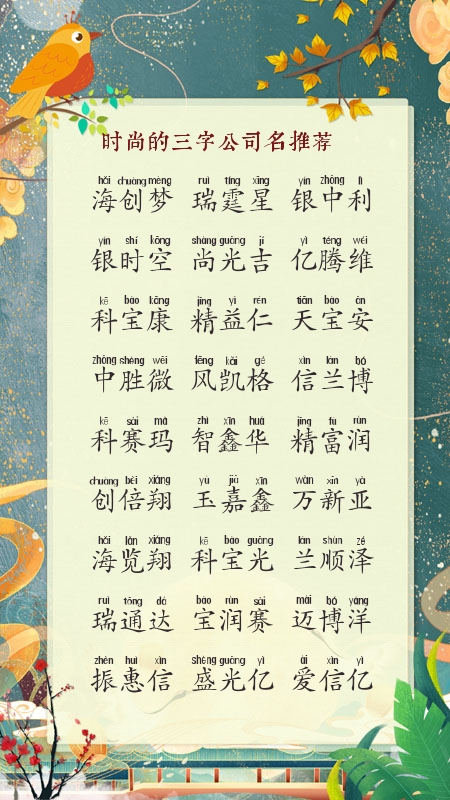 时尚的三字公司名推荐
hǎi chuàng mèng ruì tíng xīng yín zhōng lì
海创梦 瑞霆星 银中利
yín shí kōng shàng guāng jí yì téng wéi
银时空 尚光吉 亿腾维
kē bǎo kāng jīng yì rén tiān bǎo ān
科宝康 精益仁 天宝安
zhōng shèng wēi fēng kǎi gé xìn lán bó
中胜微 风凯格 信兰博
kē sài mǎ zhì xīn huá jīng fù rùn
科赛玛 智鑫华 精富润
chuàng bèi xiáng yù jiā xīn wàn xīn yà
创倍翔 玉嘉鑫 万新亚
hǎi lǎn xiáng kē bǎo guāng lán shùn zé
海览翔 科宝光 兰顺泽
ruì tōng dá bǎo rùn sài mài bó yáng
瑞通达 宝润赛 迈博洋
zhèn huì xìn shèng guāng yì ài xìn yì
振惠信 盛光亿 爱信亿